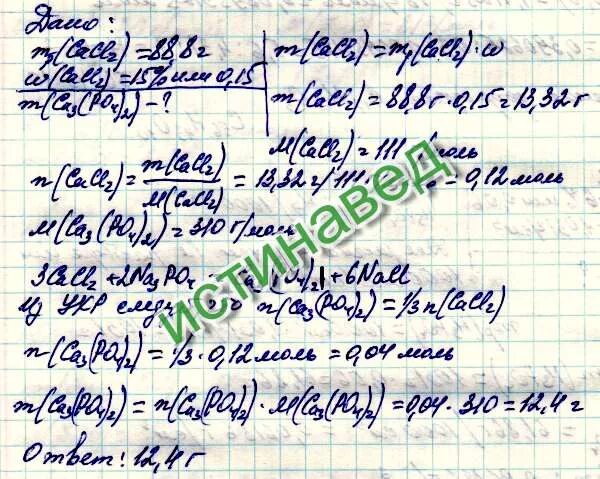 Дано:
m_p(CaCl₂) = 88,8 г
ω(CaCl₂) = 15% или 0,15
m(Ca₃(PO₄)₂) - ?
m(CaCl₂) = m_p(CaCl₂) · ω
m(CaCl₂) = 88,8 г · 0,15 = 13,32 г
M(CaCl₂) = 111 г/моль
n(CaCl₂) = m(CaCl₂)/M(CaCl₂) = 13,32 г/111 = 0,12 моль
M(Ca₃(PO₄)₂) = 310 г/моль
3CaCl₂ + 2Na₃PO₄ Ca (PO₄)₂↓ + 6NaCl
Из УХР следует n(Ca₃(PO₄)₂) = 1/3 n(CaCl₂)
n(Ca₃(PO₄)₂) = 1/3 · 0,12 моль = 0,04 моль
m(Ca₃(PO₄)₂) = n(Ca₃(PO₄)₂) · M(Ca₃(PO₄)₂) = 0,04 · 310 = 12,4 г
Ответ: 12,4 г
истинавед